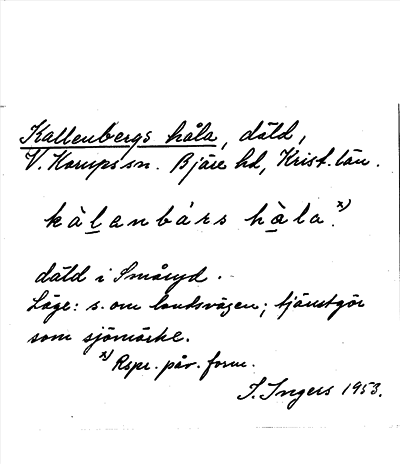 Kallenbergs håla, däld,
V. Karups sn. Bjäre hd, Krist. län.
kàlanbárs hàla.x)
däld i Småryd.
Läge: s. om landsvägen; tjänstgör
som sjömärke.
x) Rspr. påv. form.
I. Ingers 1953.